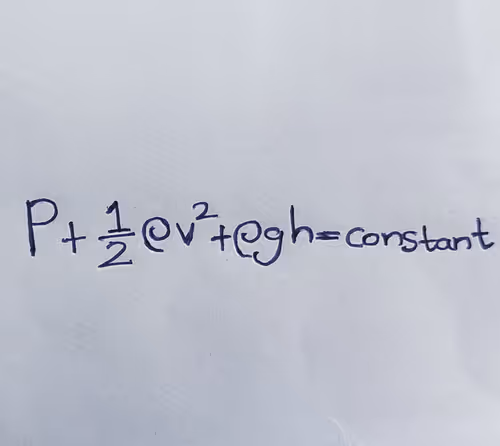 P + 1/2 ρv² + ρgh = constant